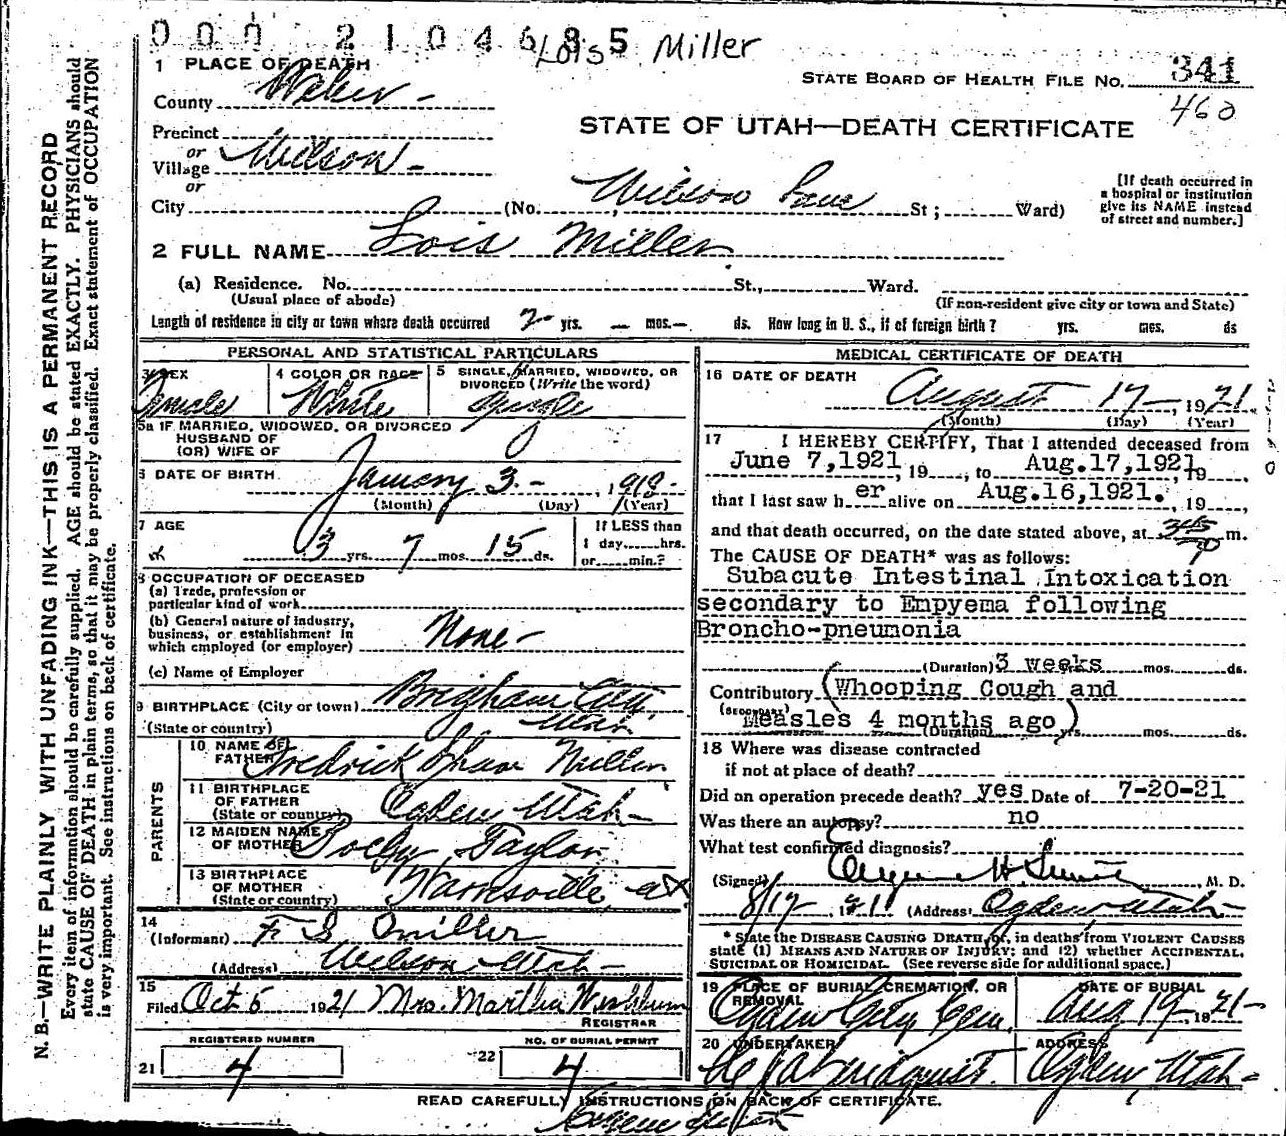 000 2104685 Lois Miller
1 PLACE OF DEATH
STATE BOARD OF HEALTH FILE NO. 341
County Weber -
460
STATE OF UTAH—DEATH CERTIFICATE
Precinct
or
Village Wilson -
or
[If death occurred in a hospital or institution give its NAME instead of street and number.]
City (No. Wilson Lane St ; Ward)
2 FULL NAME Lois Miller
(a) Residence. No. St., Ward.
(Usual place of abode) (If non-resident give city or town and State)
Length of residence in city or town where death occurred 2 yrs. — mos. — ds. How long in U. S., if of foreign birth ? yrs. mos. ds
PERSONAL AND STATISTICAL PARTICULARS
3 SEX Female
4 COLOR OR RACE White
5 SINGLE, MARRIED, WIDOWED, OR DIVORCED (Write the word) Single
5a IF MARRIED, WIDOWED, OR DIVORCED
HUSBAND OF
(OR) WIFE OF
6 DATE OF BIRTH January 3 - , 1918 -
(Month) (Day) (Year)
7 AGE 3 yrs. 7 mos. 15 ds.
If LESS than
1 day, hrs.
or min.?
8 OCCUPATION OF DECEASED
(a) Trade, profession or
particular kind of work
(b) General nature of industry,
business, or establishment in
which employed (or employer) None -
(c) Name of Employer
9 BIRTHPLACE (City or town) Brigham City,
(State or country) Utah
PARENTS
10 NAME OF FATHER Fredrick Miller
11 BIRTHPLACE
OF FATHER
(State or country) Ogden Utah -
12 MAIDEN NAME
OF MOTHER Taylor
13 BIRTHPLACE
OF MOTHER
(State or country) Harrisville
14
(Informant) F S Miller
(Address) Wilson Utah -
15
Filed Oct 6 1921 Mrs. Martha Washburn
REGISTRAR
REGISTERED NUMBER
21 4
NO. OF BURIAL PERMIT
22 4
MEDICAL CERTIFICATE OF DEATH
16 DATE OF DEATH August 17 , 1921
(Month) (Day) (Year)
17 I HEREBY CERTIFY, That I attended deceased from
June 7,1921, 19 , to Aug.17,1921, 19
that I last saw h er alive on Aug.16,1921. 19 ,
and that death occurred, on the date stated above, at 345 m.
The CAUSE OF DEATH* was as follows:
Subacute Intestinal Intoxication
secondary to Empyema following
Broncho-pneumonia
(Duration) 3 weeks mos. ds.
Contributory (Whooping Cough and
(SECONDARY) Measles 4 months ago)
(Duration) yrs. mos. ds.
18 Where was disease contracted
if not at place of death?
Did an operation precede death? yes Date of 7-20-21
Was there an autopsy? no
What test confirmed diagnosis?
(Signed) Eugene H. Smith, M. D.
8/17 , 1921 (Address) Ogden Utah -
* State the DISEASE CAUSING DEATH, or, in deaths from VIOLENT CAUSES
state (1) MEANS AND NATURE OF INJURY; and (2) whether ACCIDENTAL,
SUICIDAL OR HOMICIDAL. (See reverse side for additional space.)
19 PLACE OF BURIAL, CREMATION, OR REMOVAL
Ogden City Cem.
DATE OF BURIAL
Aug 19 , 1921 -
20 UNDERTAKER
Lindquist.
ADDRESS
Ogden, Utah -
READ CAREFULLY INSTRUCTIONS ON BACK OF CERTIFICATE.
Eugene Smith
N. B.—WRITE PLAINLY WITH UNFADING INK—THIS IS A PERMANENT RECORD
Every item of information should be carefully supplied. AGE should be stated EXACTLY. PHYSICIANS should
state CAUSE OF DEATH in plain terms, so that it may be properly classified. Exact statement of OCCUPATION
is very important. See instructions on back of certificate.